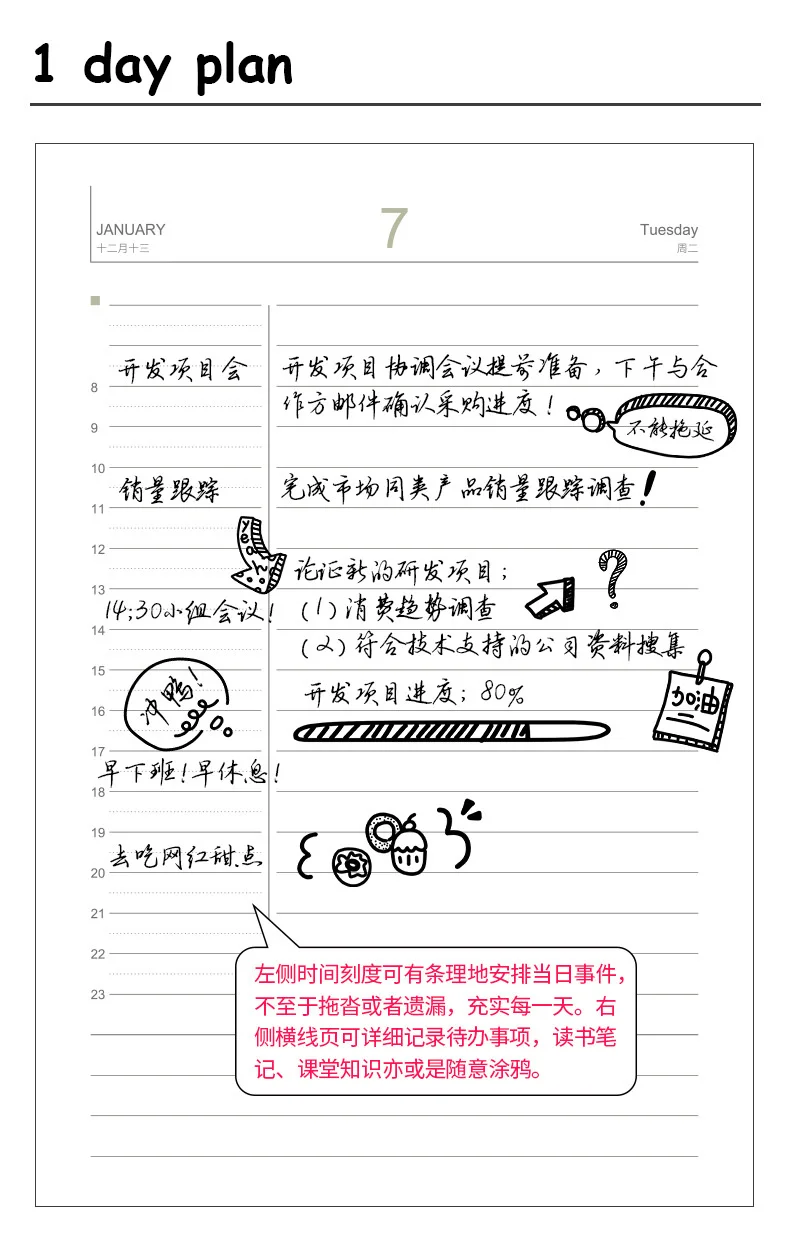 1 day plan
JANUARY
十二月十三
7
Tuesday
周二
开发项目会
开发项目协调会议提前准备，下午与合
8
作方邮件确认采购进度！
不能拖延
9
10
销量跟踪
完成市场同类产品销量跟踪调查！
11
yeah
12
论证新的研发项目；
?
13
14:30小组会议！
(1)消费趋势调查
14
(2)符合技术支持的公司资料搜集
15
冲鸭！
开发项目进度；80%
加油
16
17
早下班！早休息！
18
19
去吃网红甜点
20
21
22
23
左侧时间刻度可有条理地安排当日事件，
不至于拖沓或者遗漏，充实每一天。右
侧横线页可详细记录待办事项，读书笔
记、课堂知识亦或是随意涂鸦。